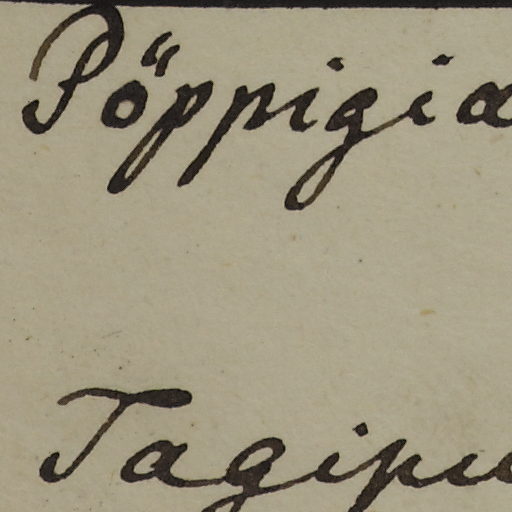 Pöppigia
Tagipu